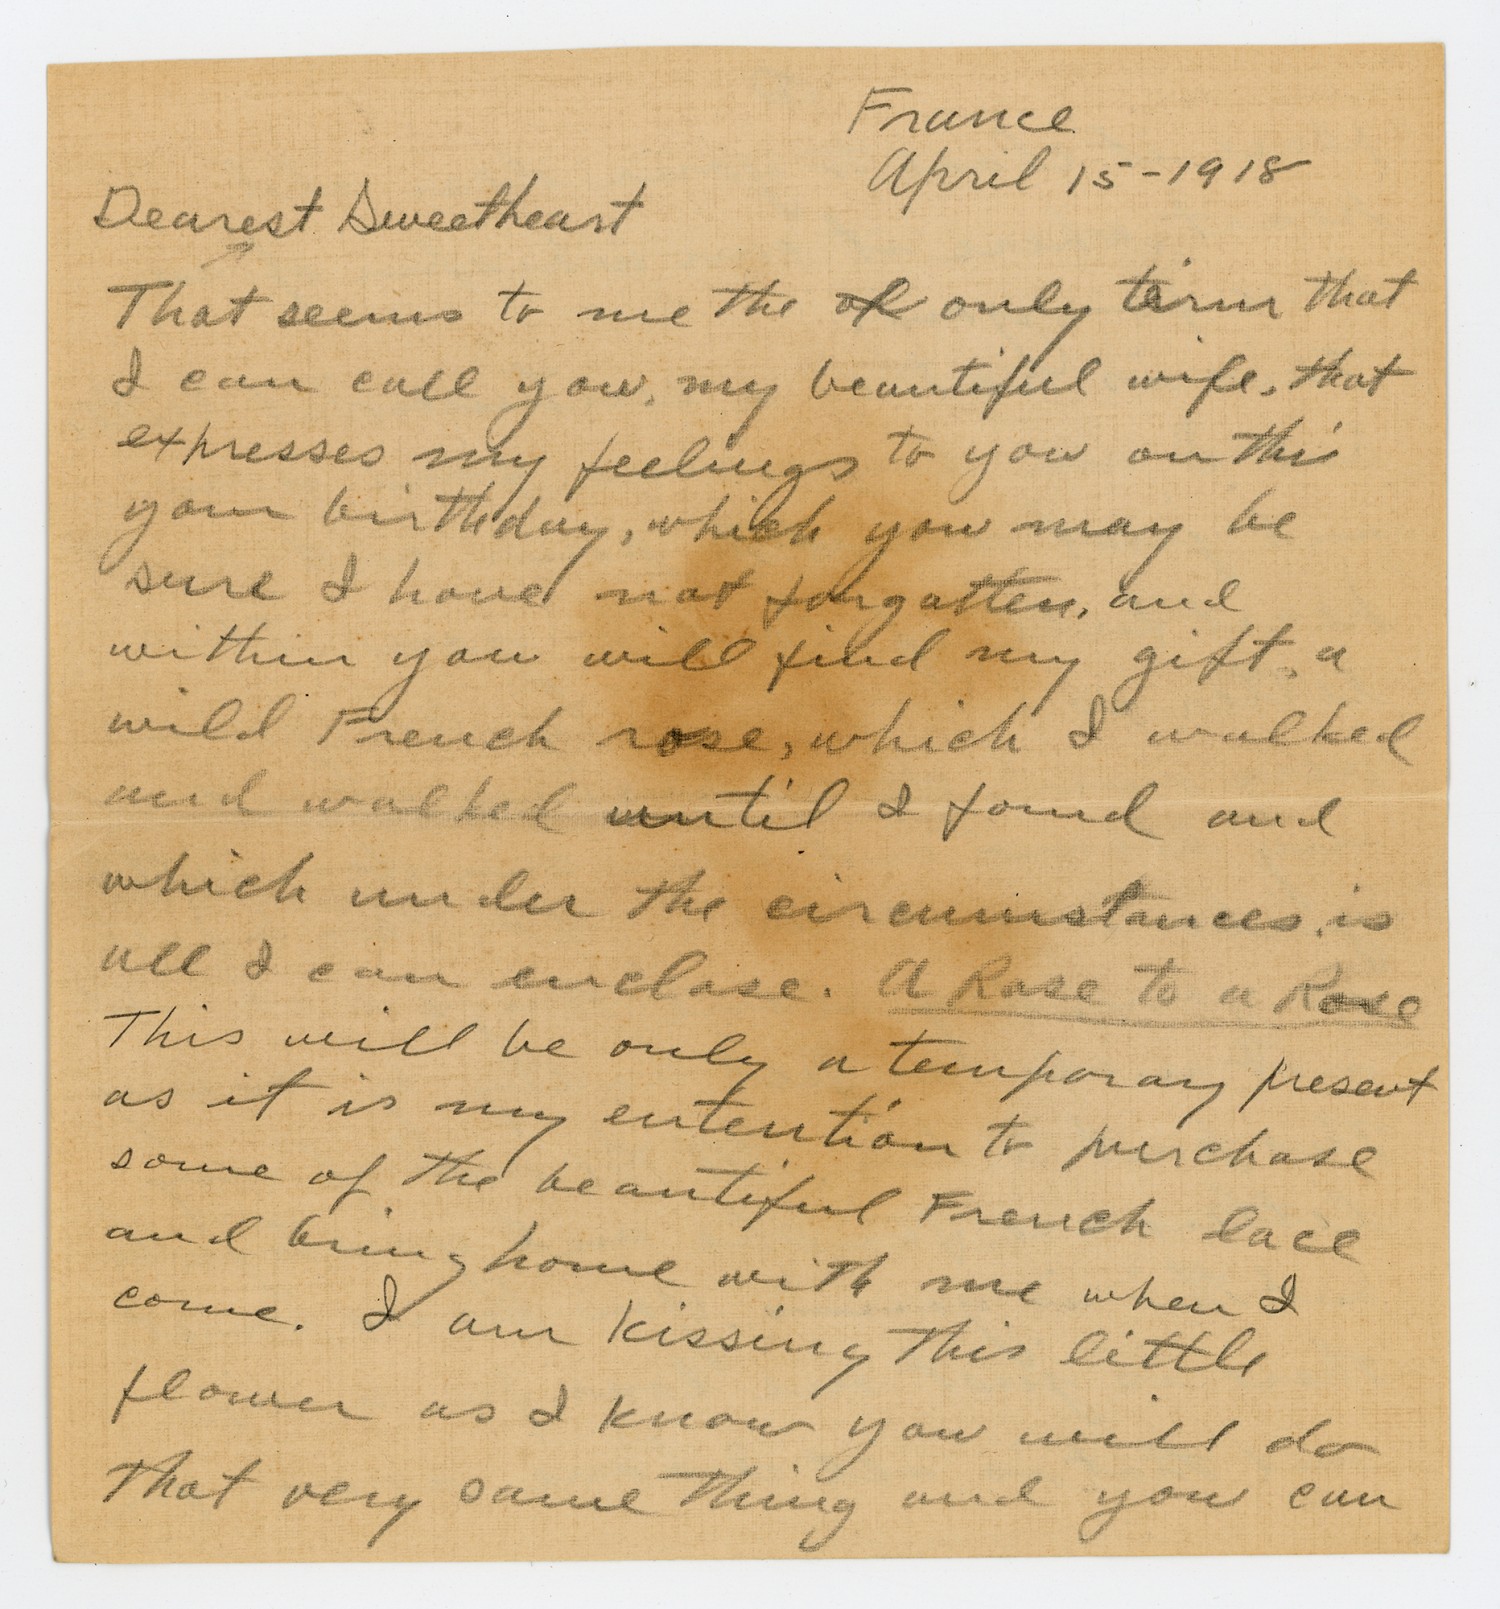 France
April 15-1918
Dearest Sweetheart
That seems to me the only term that
I can call you, my beautiful wife, that
expresses my feelings to you on this
your birthday, which you may be
sure I have not forgotten, and
within you will find my gift, a
wild French rose, which I walked
and walked until I found and
which under the circumstances, is
all I can enclose. A Rose to a Rose
This will be only a temporary present
as it is my entention to purchase
some of the beautiful French lace
and bring home with me when I
come. I am kissing this little
flower as I know you will do
that very same thing and you can